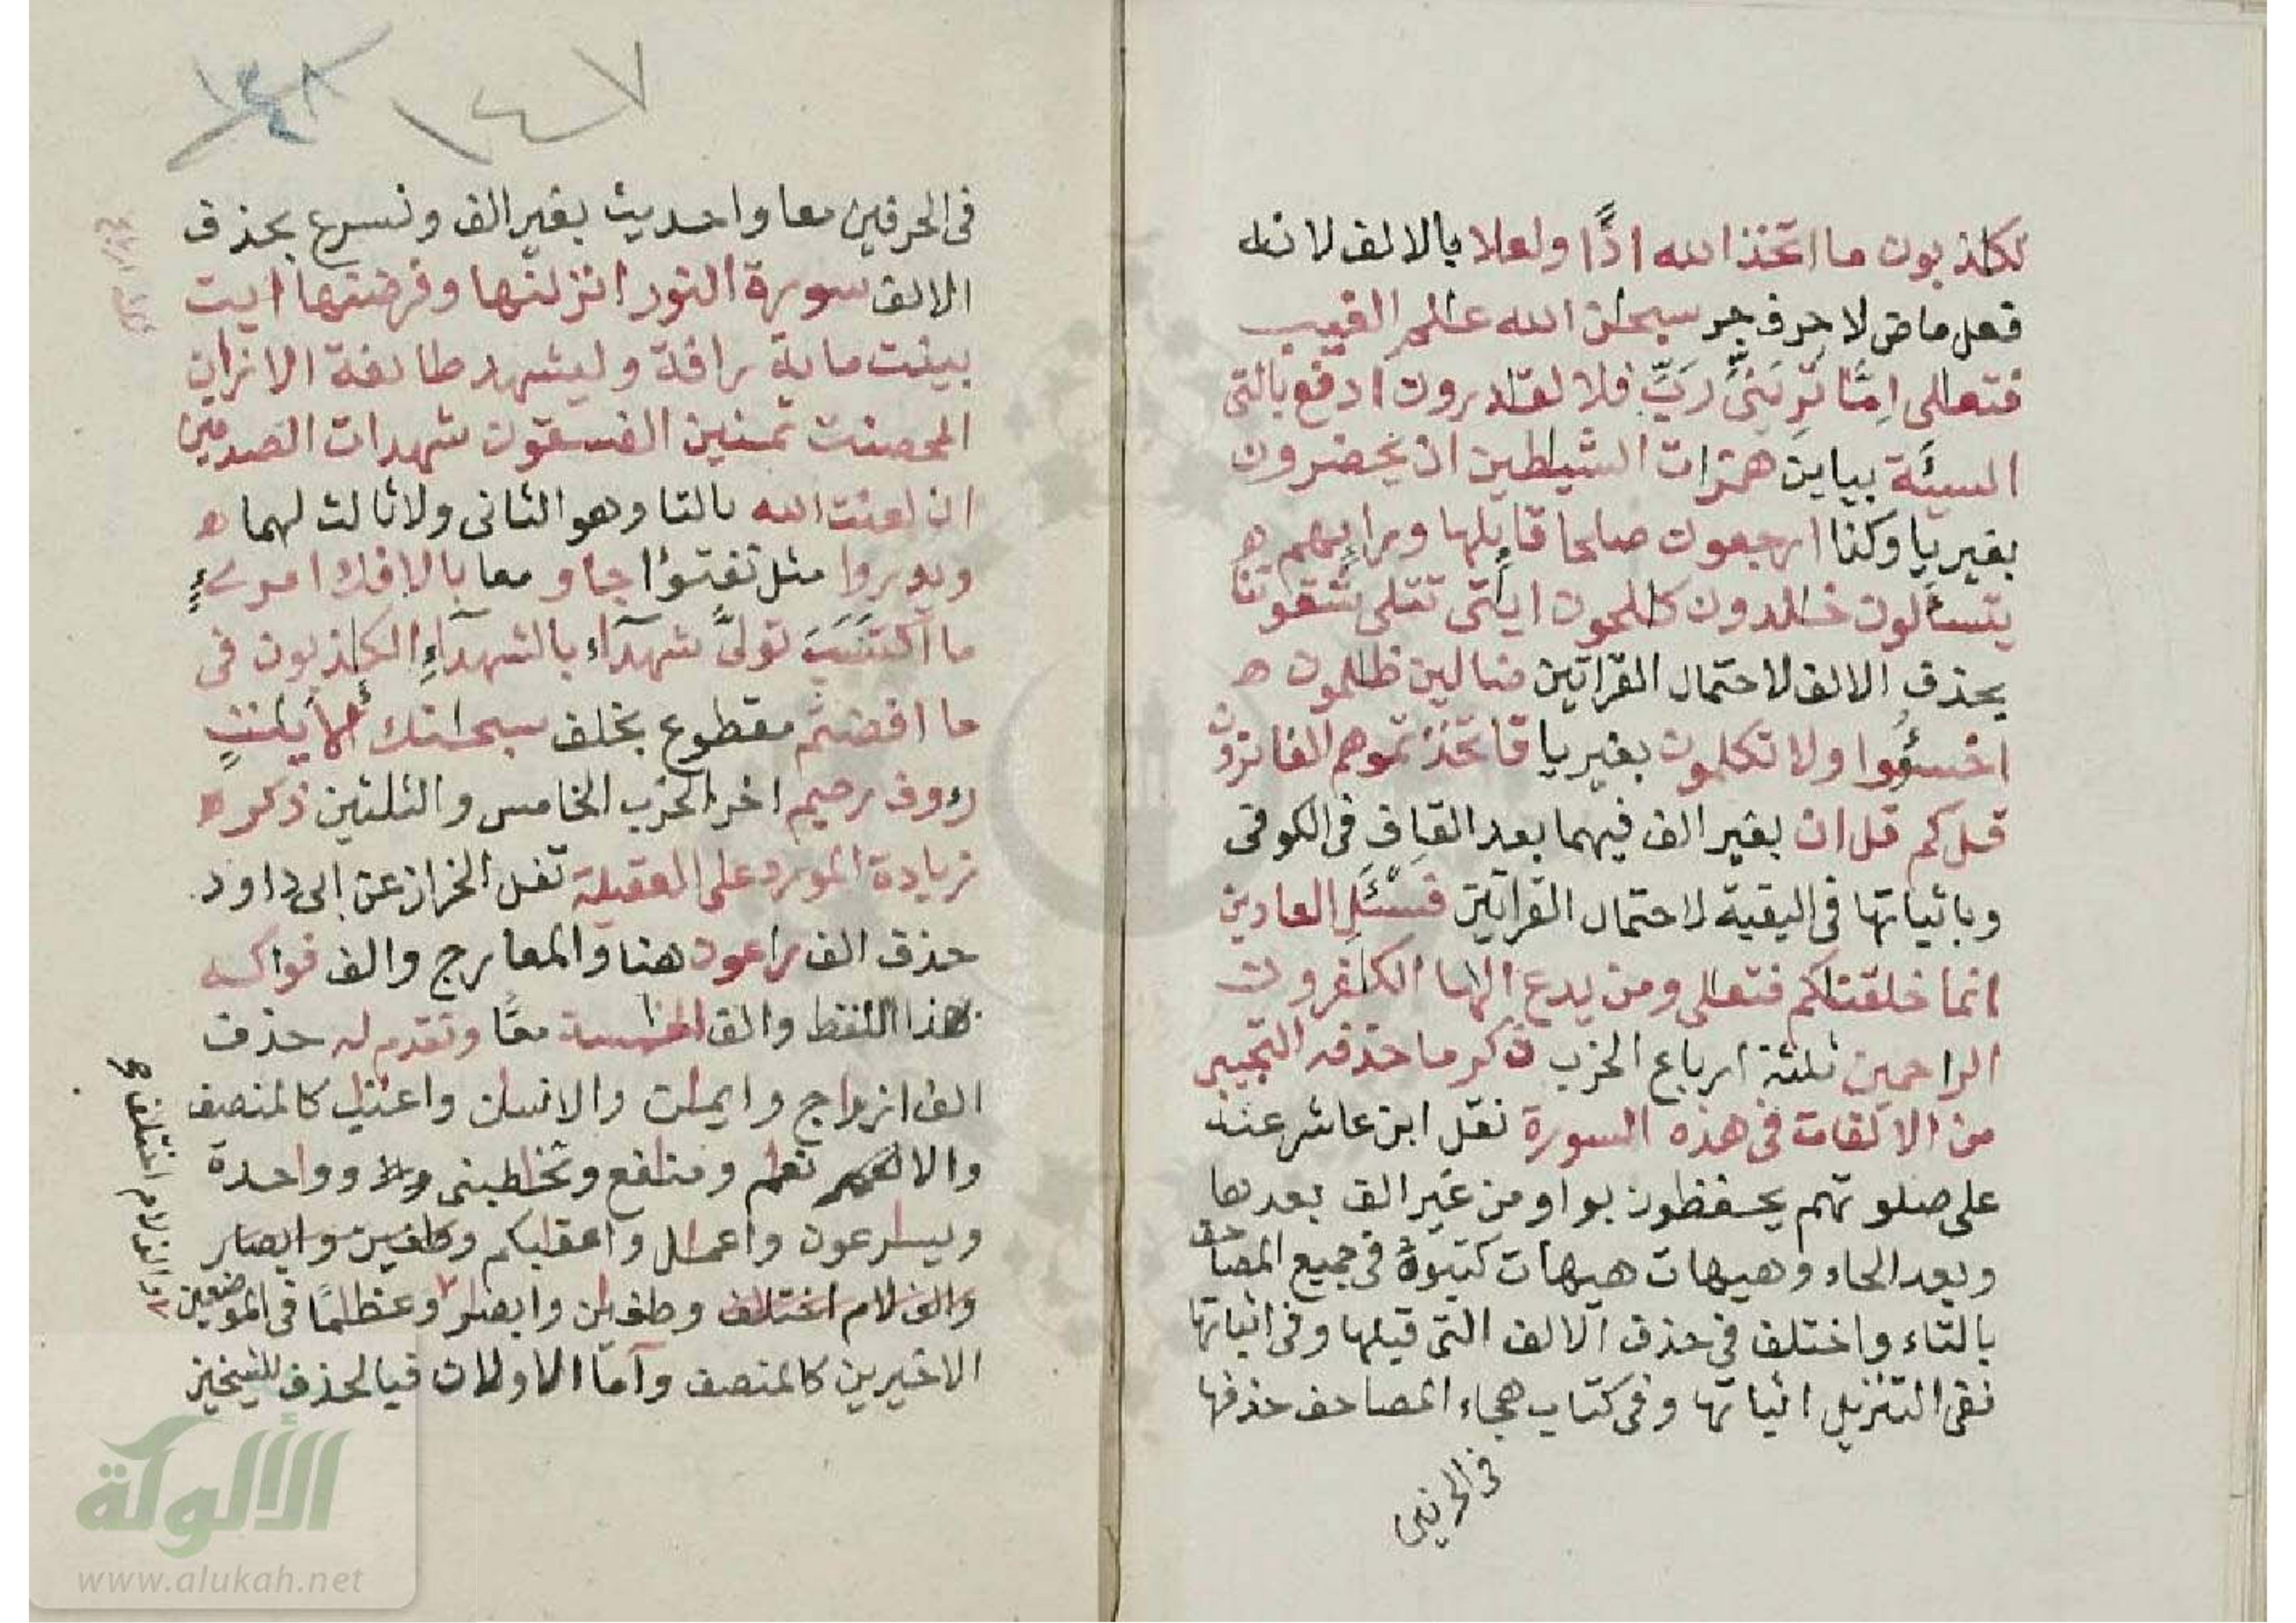 لكذبون ما اتخذ الله اذًا ولعلا بالالف لانه
فعل ماض لا حرف جر سبحٰن الله عٰلم الغيب
فتعٰلى اِمَّا تُرِيَنّى رَبِّ فلا لقٰدرون ادفع بالتى
السيئة بياين همزات الشيٰطين ان يحضرون
بغير يا وكذا ارجعون صالحا قايلها ورايهم
يتسألون خٰلدون كٰلحون ايٰتى تتلى شقوتنا
بحذف الالف لاحتمال القراتين ضالين ظٰلمون
اخسؤوا ولا تكلمون بغير يا فاتخذتموهم الفائزون
قل كم قل ان بغير الف فيهما بعد القاف فى الكوفى
وباثباتها فى البقية لاحتمال القراتين فسئل العادين
انما خلقنٰكم فتعٰلى ومن يدع الٰها الكٰفرون
الراحمين ثلثة ارباع الحزب ذكر ما حذفه التجيبى
من الالفات فى هذه السورة نقل ابن عاشر عنه
على صلوتهم يحفظون بواو من غير الف بعدها
وبعد الحاء وهيهات هيهات كتبوهُ فى جميع المصاحف
بالتاء واختلف فى حذف الالف التى قبلها وفى اثباتها
ففى التنزيل اثباتها وفى كتاب هجاء المصاحف حذفها
فى الحرفين
١٤٧
١٤٨
فى الحرفين معا واحديث بغير الف ونسرع بحذف
الالف سورة النور انزلنٰها وفرضنٰها ايت
بينٰت ماية رافة وليشهد طائفة الا زان
المحصنٰت ثمنين الفسقون شهدات الصدقين
ان لعنت الله بالتا وهو الثانى ولا ثالث لهما
ويدروا مثل تفتؤا جاو معا بالافك امرئٍ
ما اكتسَبَ تولّى شهدآء بالشهدآءِ الكٰذبون فى
ما افضتم مقطوع بخلف سبحٰنك
رءوف رحيم اخر الحزب الخامس والثلثين ذكر
زيادة المورد على العقيلة نقل الخراز عن ابى داود
حذف الف راعون هنا والمعارج والف فواكه
هذا اللفظ والف الخٰمسة معًا وتقدم له حذف
الف ازواج وايمٰن والانسٰن واعنٰب كالمنصف
والانعٰم ومنٰفع وتخٰطبنى وواحدة
ويسٰرعون واعمٰل واعقٰبكم
والف لام اختلٰف وطغيٰن وابصٰر وعظٰمًا فى الموضعين
الاخيرين كالمنصف وآما الاولان فبالحذف للشيخين
والف لام اختلف